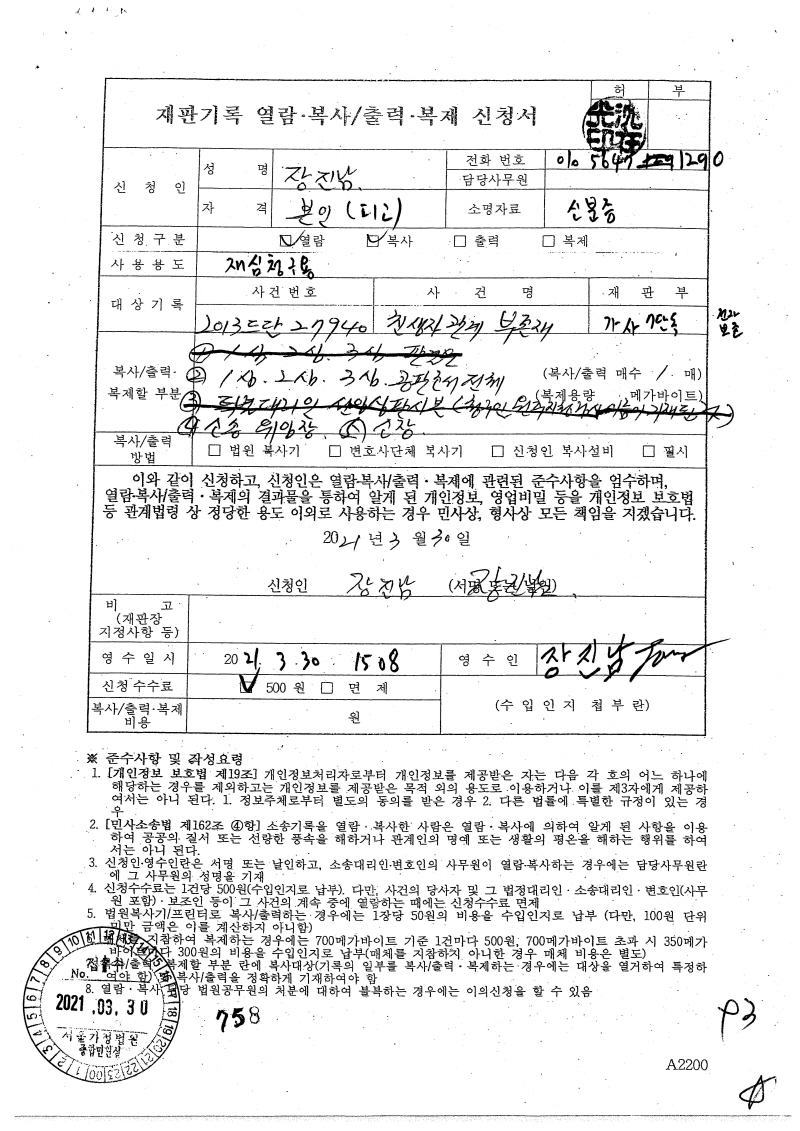 허 부
재판기록 열람·복사/출력·복제 신청서
신 청 인
성 명 장진남
전화 번호 010 5647 1290
담당사무원
자 격 본인 (피고)
소명자료 신분증
신 청 구 분 ☑열람 ☑복사 □ 출력 □ 복제
사 용 용 도 재심청구용
대 상 기 록
사 건 번 호 사 건 명 재 판 부
2013드단27940 친생자관계 부존재 가사 7단독
전자
보존
복사/출력·
복제할 부분
① 1심. 2심. 3심 판결문
② 1심. 2심. 3심. 공판조서 전체 (복사/출력 매수 / 매)
(복제용량 메가바이트)
④ 소송위임장 ⑤ 소장
복사/출력
방법
□ 법원 복사기 □ 변호사단체 복사기 □ 신청인 복사설비 □ 필사
이와 같이 신청하고, 신청인은 열람·복사/출력·복제에 관련된 준수사항을 엄수하며,
열람·복사/출력·복제의 결과물을 통하여 알게 된 개인정보, 영업비밀 등을 개인정보 보호법
등 관계법령 상 정당한 용도 이외로 사용하는 경우 민사상, 형사상 모든 책임을 지겠습니다.
2021년 3 월 30 일
신청인 장진남
비 고
(재판장
지정사항 등)
영 수 일 시 2021. 3. 30 1508 영 수 인 장진남
신청 수수료 ☑ 500 원 □ 면 제
(수 입 인 지 첩 부 란)
복사/출력·복제
비용
원
※ 준수사항 및 작성요령
1. [개인정보 보호법 제19조] 개인정보처리자로부터 개인정보를 제공받은 자는 다음 각 호의 어느 하나에
해당하는 경우를 제외하고는 개인정보를 제공받은 목적 외의 용도로 이용하거나 이를 제3자에게 제공하
여서는 아니 된다. 1. 정보주체로부터 별도의 동의를 받은 경우 2. 다른 법률에 특별한 규정이 있는 경
우
2. [민사소송법 제162조 ④항] 소송기록을 열람·복사한 사람은 열람·복사에 의하여 알게 된 사항을 이용
하여 공공의 질서 또는 선량한 풍속을 해하거나 관계인의 명예 또는 생활의 평온을 해하는 행위를 하여
서는 아니 된다.
3. 신청인·영수인란은 서명 또는 날인하고, 소송대리인·변호인의 사무원이 열람·복사하는 경우에는 담당사무원란
에 그 사무원의 성명을 기재
4. 신청수수료는 1건당 500원(수입인지로 납부). 다만, 사건의 당사자 및 그 법정대리인·소송대리인·변호인(사무
원 포함)·보조인 등이 그 사건의 계속 중에 열람하는 때에는 신청수수료 면제
5. 법원복사기/프린터로 복사/출력하는 경우에는 1장당 50원의 비용을 수입인지로 납부 (다만, 100원 단위
미만 금액은 이를 계산하지 아니함)
지참하여 복제하는 경우에는 700메가바이트 기준 1건마다 500원, 700메가바이트 초과 시 350메가
바이트마다 300원의 비용을 수입인지로 납부(매체를 지참하지 아니한 경우 매체 비용은 별도)
복제할 부분 란에 복사대상(기록의 일부를 복사/출력·복제하는 경우에는 대상을 열거하여 특정하
여야 함) 복사/출력을 정확하게 기재하여야 함
8. 열람·복사 담당 법원공무원의 처분에 대하여 불복하는 경우에는 이의신청을 할 수 있음
접 수
No.
2021.03.30
서울가정법원
종합민원실
758
P3
A2200